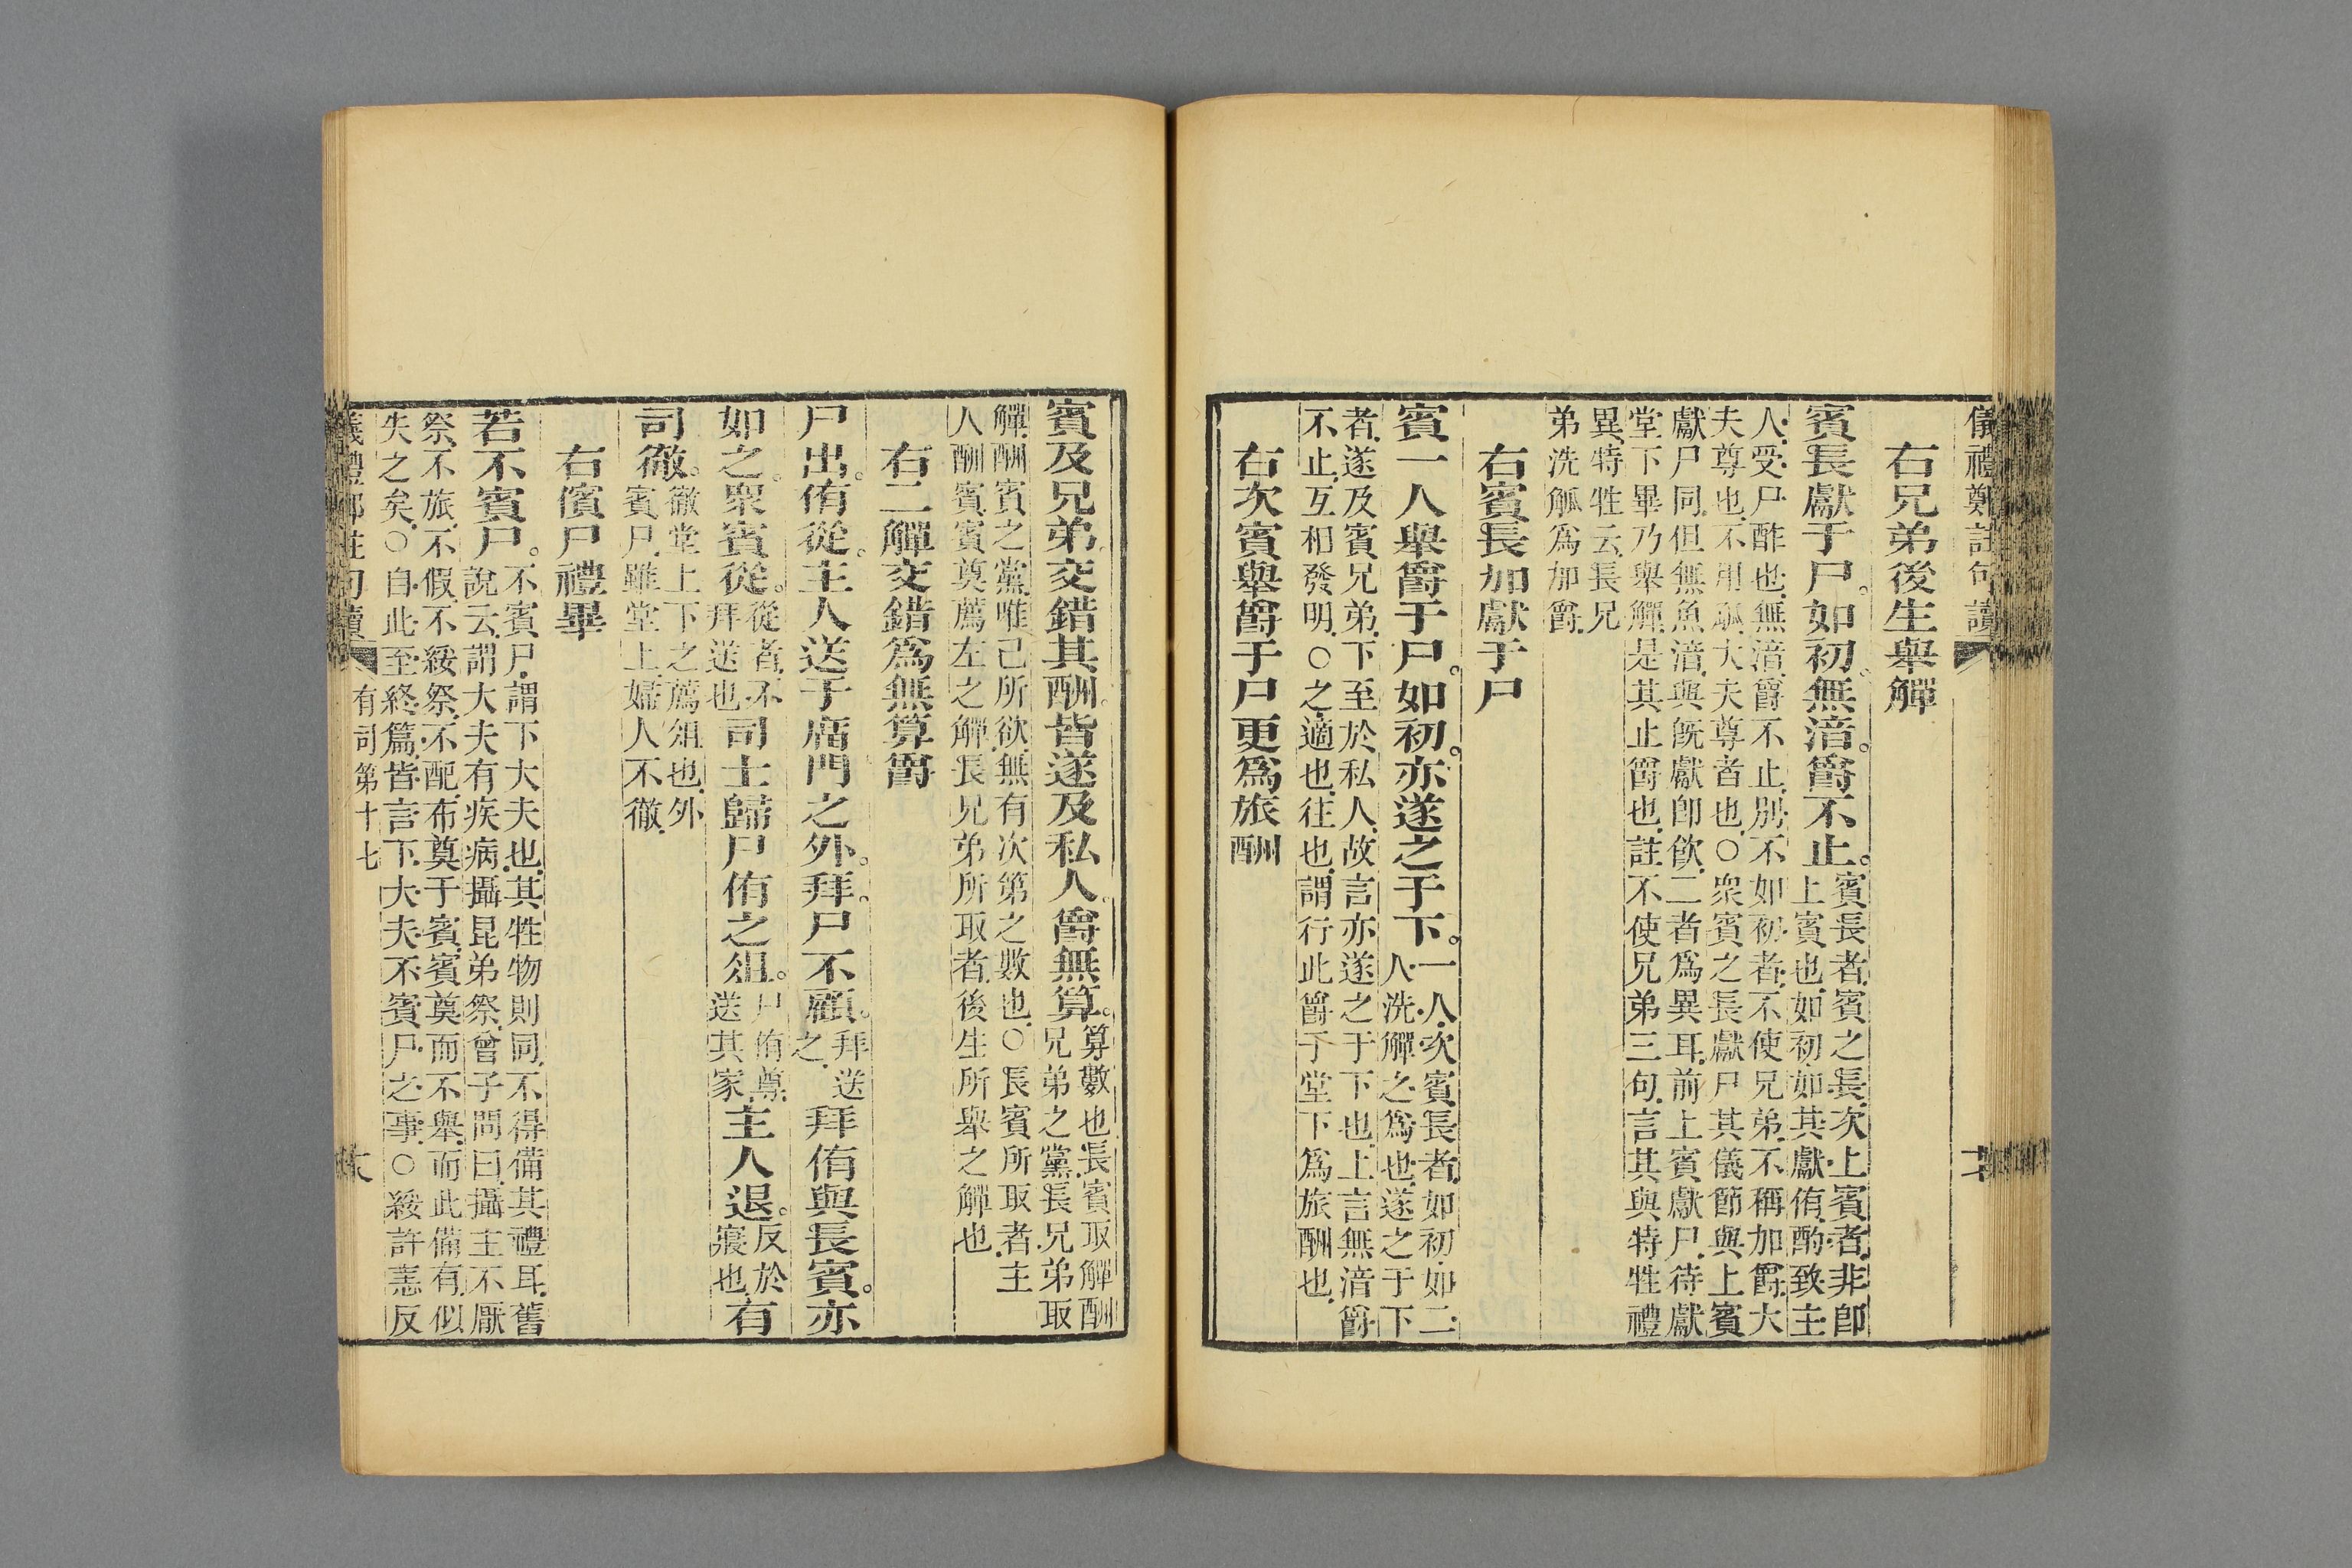 儀禮鄭註句讀
右兄弟後生舉觶
賓長獻于尸。如初。無湇。爵不止。賓長者。賓之長。次上賓者。非卽
上賓也。如初。如其獻侑酌致主
人。受尸酢也。無湇。爵不止。別不如初者。不使兄弟。不稱加爵。大
夫尊也。不用觚。大夫尊者也。○衆賓之長獻尸。其儀節與上賓
獻尸同。但無魚湇。與旣獻卽飲。二者爲異耳。前上賓獻尸。待獻
堂下畢。乃舉觶。是其止爵也。註不使兄弟三句。言其與特牲禮
異。特牲云。長兄
弟洗觚爲加爵。
右賓長加獻于尸
賓一人舉爵于尸。如初。亦遂之于下。一人。次賓長者。如初。如二
人洗觶之爲也。遂之于下
者。遂及賓兄弟。下至於私人。故言亦遂之于下也。上言無湇爵
不止。互相發明。○之。適也。往也。謂行此爵于堂下爲旅酬也。
右次賓舉爵于尸更爲旅酬
賓及兄弟。交錯其酬。皆遂及私人。爵無算。算。數也。長賓取觶酬
兄弟之黨。長兄弟取
觶酬賓之黨。唯己所欲。無有次第之數也。○長賓所取者。主
人酬賓。賓奠薦左之觶。長兄弟所取者。後生所舉之觶也。
右二觶交錯爲無算爵
尸出。侑從。主人送于廟門之外。拜。尸不顧。拜送
之。拜侑與長賓。亦
如之。衆賓從。從者。不
拜送也。司士歸尸侑之俎。尸侑尊。
送其家主人退。反於
寢也有
司徹。徹堂上下之薦俎也。外
賓尸。雖堂上。婦人不徹。
右儐尸禮畢
若不賓尸。不賓尸。謂下大夫也。其牲物則同。不得備其禮耳。舊
說云。謂大夫有疾病。攝昆弟祭。曾子問曰。攝主不厭
祭。不旅。不假。不綏祭。不配。布奠于賓。賓奠而不舉。而此備有。似
失之矣。○自此至終篇。皆言下大夫不賓尸之事。○綏許恚反
儀禮鄭註句讀
有司第十七